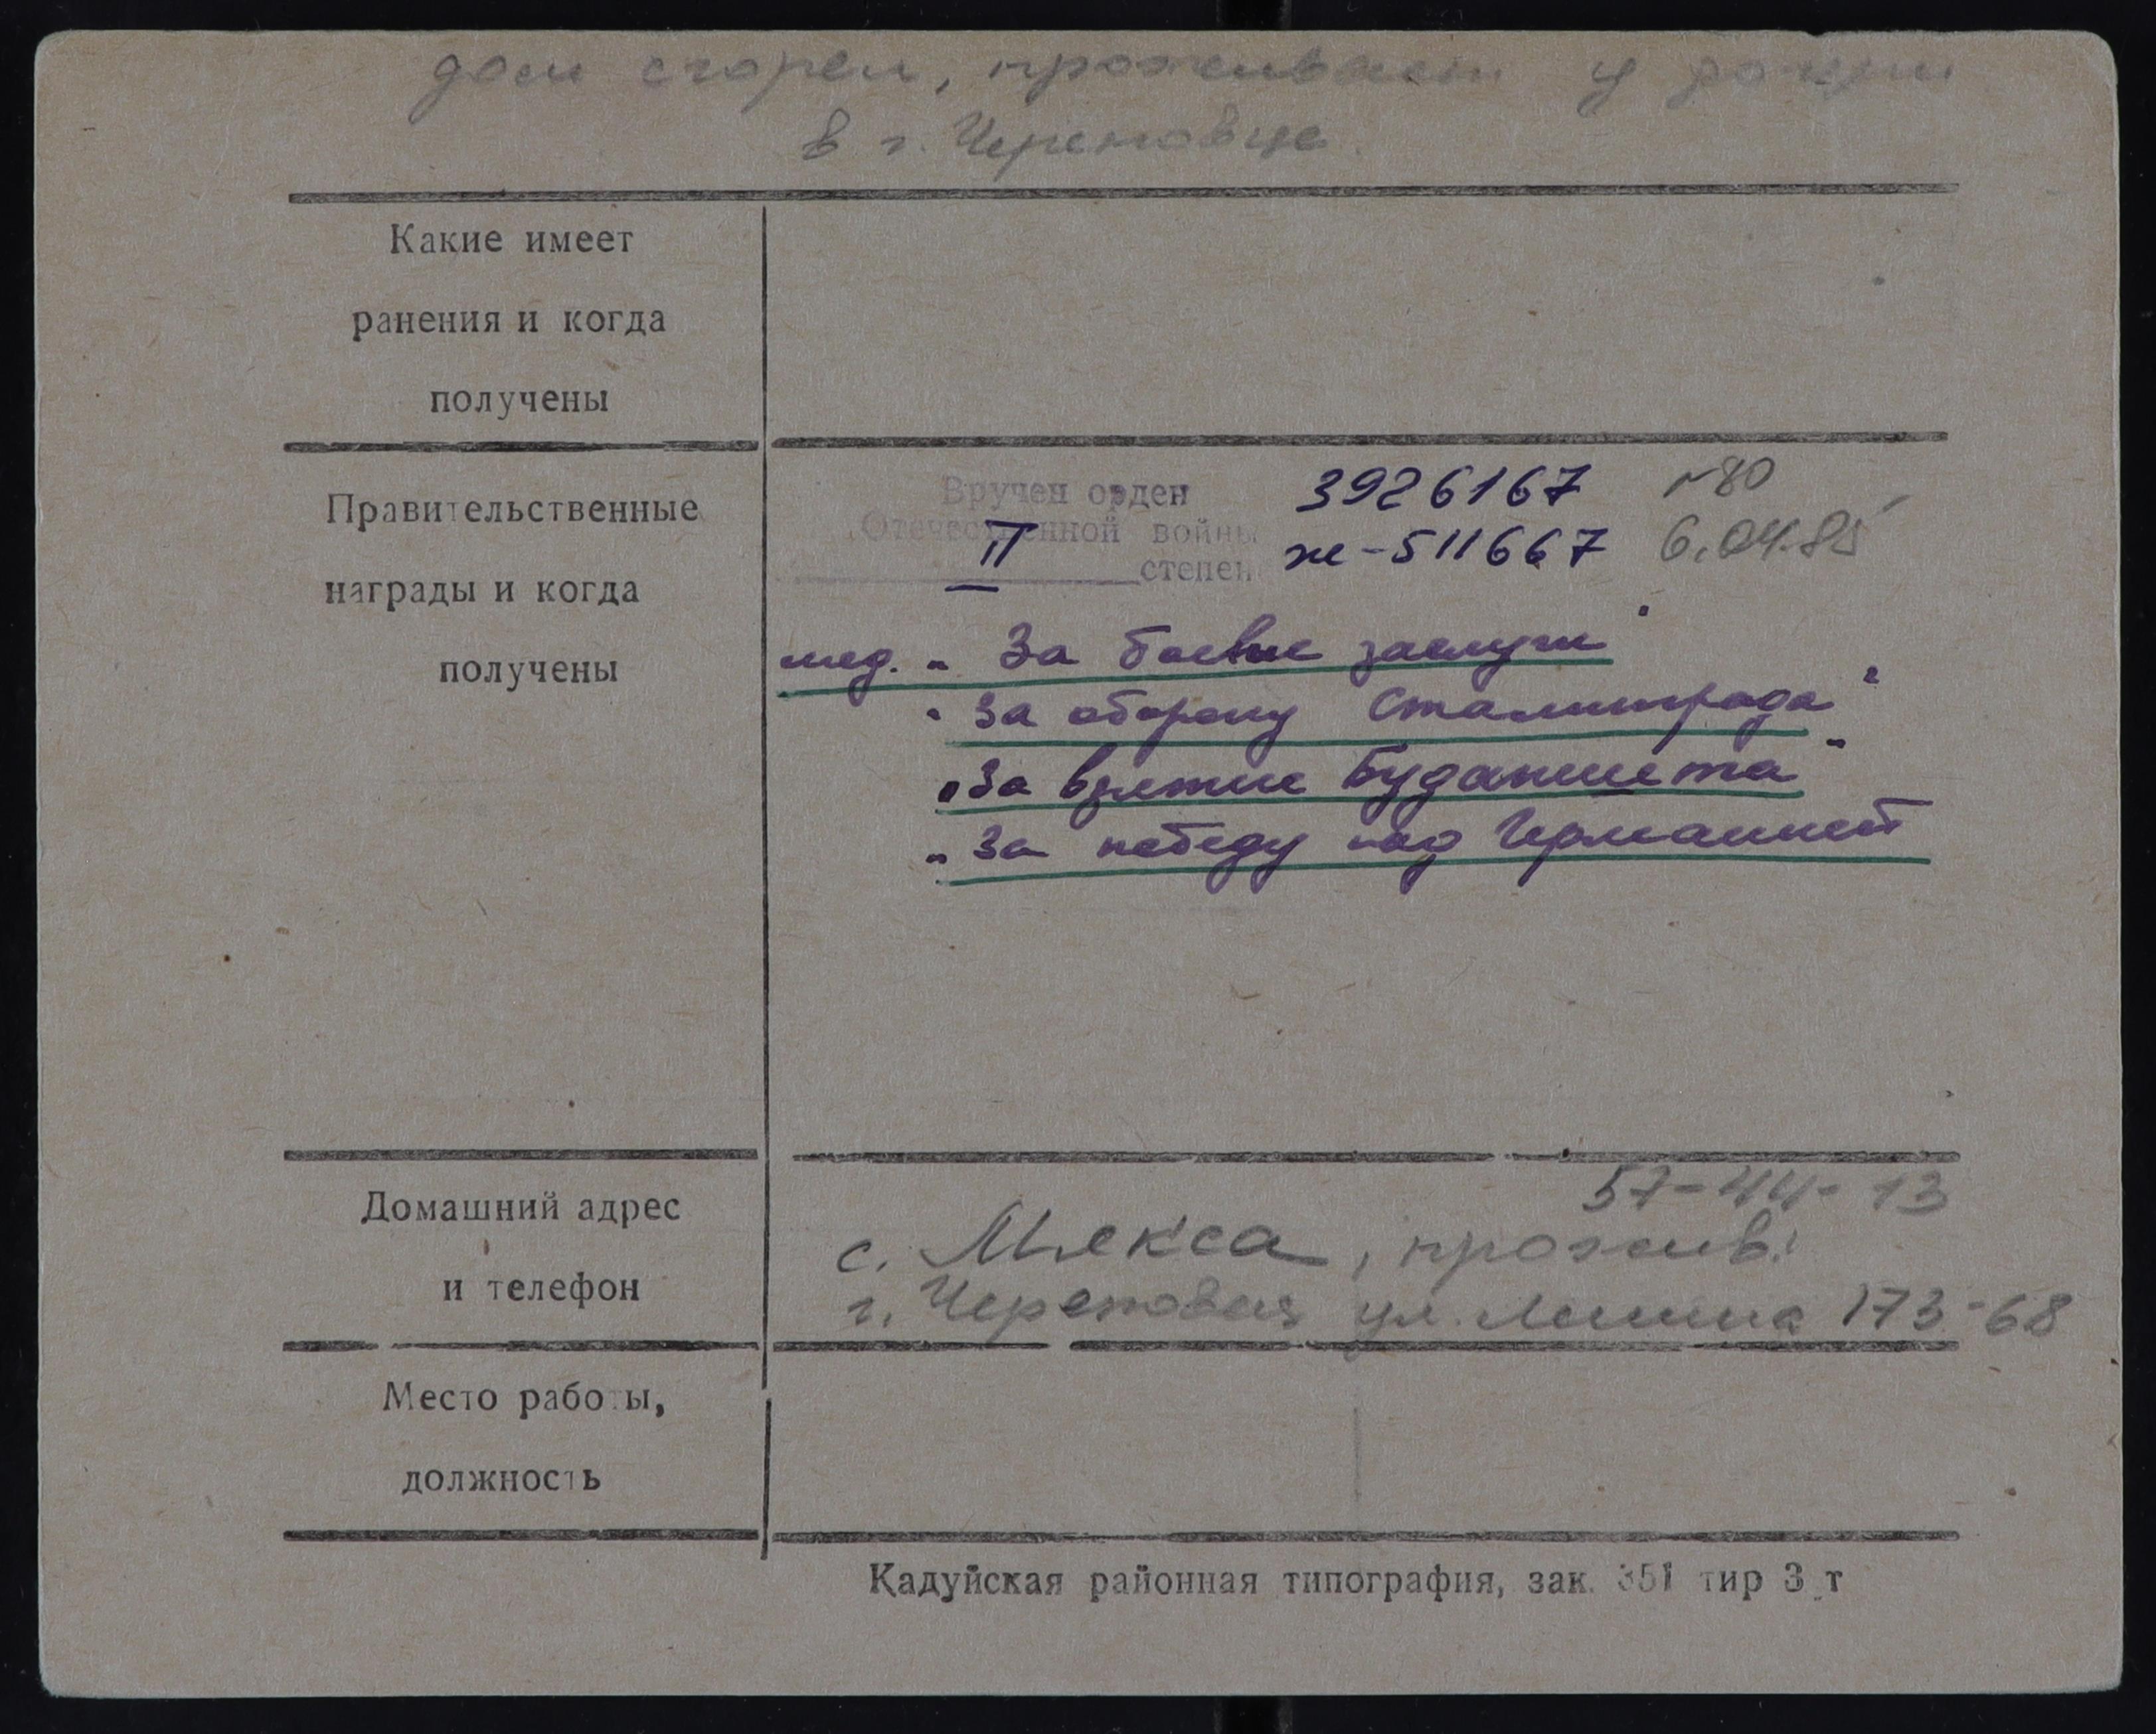 дом сгорел, проживает у дочери
в г. Череповце.
Какие имеет
ранения и когда
получены
Правительственные
награды и когда
получены
Вручен орден
Отечественной войны
II степени
3926167 №80
ж-511667 6.04.85
мед. „За боевые заслуги"
„За оборону Сталинграда"
„За взятие Будапешта"
„За победу над Германией
Домашний адрес
и телефон
57-44-13
с. Мякса, прожив.
г. Череповец ул. Ленина 173-68
Место работы,
должность
Кадуйская районная типография, зак. 351 тир 3 т